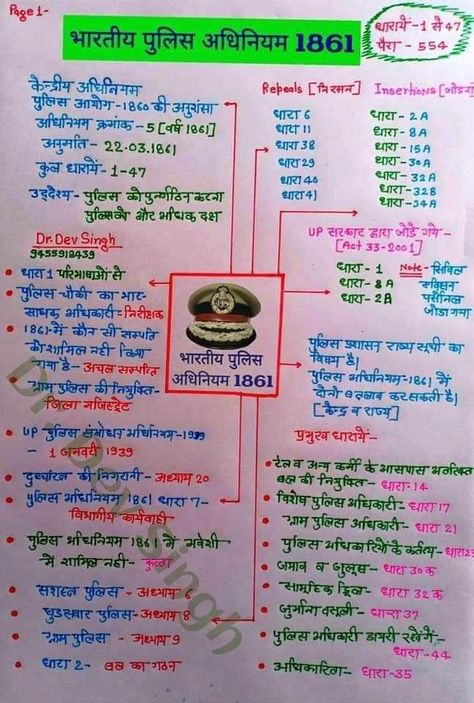 Page 1-
भारतीय पुलिस अधिनियम 1861
धारायें - 1 से 47
पैरा - 554
केन्द्रीय अधिनियम
पुलिस आयोग-1860 की अनुशंसा
अधिनियम क्रमांक - 5 [वर्ष 1861]
अनुमति - 22.03.1861
कुल धारायें - 1-47
उद्देश्य - पुलिस को पुनर्गठित करना
और अधिक दक्ष
Dr. Dev Singh
9455918439
धारा 1 परिभाषाओं से
पुलिस चौकी का भार-
साधक अधिकारी-निरीक्षक
1861 में कौन सी सम्पति
को शामिल नहीं किया
गया है - अचल सम्पत्ति
ग्राम पुलिस की नियुक्ति-
जिला मजिस्ट्रेट
UP पुलिस संशोधन अधिनियम-1939
- 1 जनवरी 1939
की निगरानी - अध्याय 20
पुलिस अधिनियम 1861 धारा 7-
विभागीय कार्यवाही
पुलिस अधिनियम 1861 में मवेशी
में शामिल नहीं - कुत्ता
सशस्त्र पुलिस - अध्याय 6
घुड़सवार पुलिस - अध्याय 8
ग्राम पुलिस - अध्याय 9
धारा 2 - बल का गठन
Repeals [निरसन]
धारा 6
धारा 11
धारा 38
धारा 29
धारा 40
धारा 41
Insertions
धारा - 2A
धारा - 8A
धारा - 15A
धारा - 30A
धारा - 32A
धारा - 32B
धारा - 34A
UP सरकार द्वारा जोड़े गये -
[Act 33-2001]
धारा - 1
धारा - 8A
धारा - 2A
Note - सिविल
पर्सोनल
जोड़ा गया
भारतीय पुलिस
अधिनियम 1861
पुलिस प्रशासन राज्य सूची का
विषय है।
पुलिस अधिनियम-1861 में
दोनों बदलाव कर सकती है।
[केन्द्र व राज्य]
प्रमुख धारायें-
रेलवे अन्य कर्मी के आसपास अतिरिक्त
बल की नियुक्ति - धारा-14
विशेष पुलिस अधिकारी - धारा 17
ग्राम पुलिस अधिकारी - धारा 21
पुलिस अधिकारियों के कर्तव्य - धारा 23
जमाव व जुलूस - धारा 30 क
सामूहिक ड्रिल - धारा 32 क
जुर्माना वसूली - धारा 37
पुलिस अधिकारी डायरी रखेंगे -
धारा - 44
अधिकारिता - धारा - 35
Dr. Dev Singh